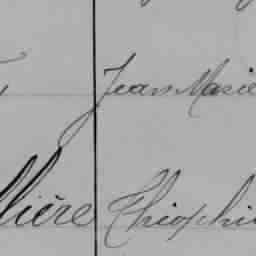 Jean Marie
llière Théophi